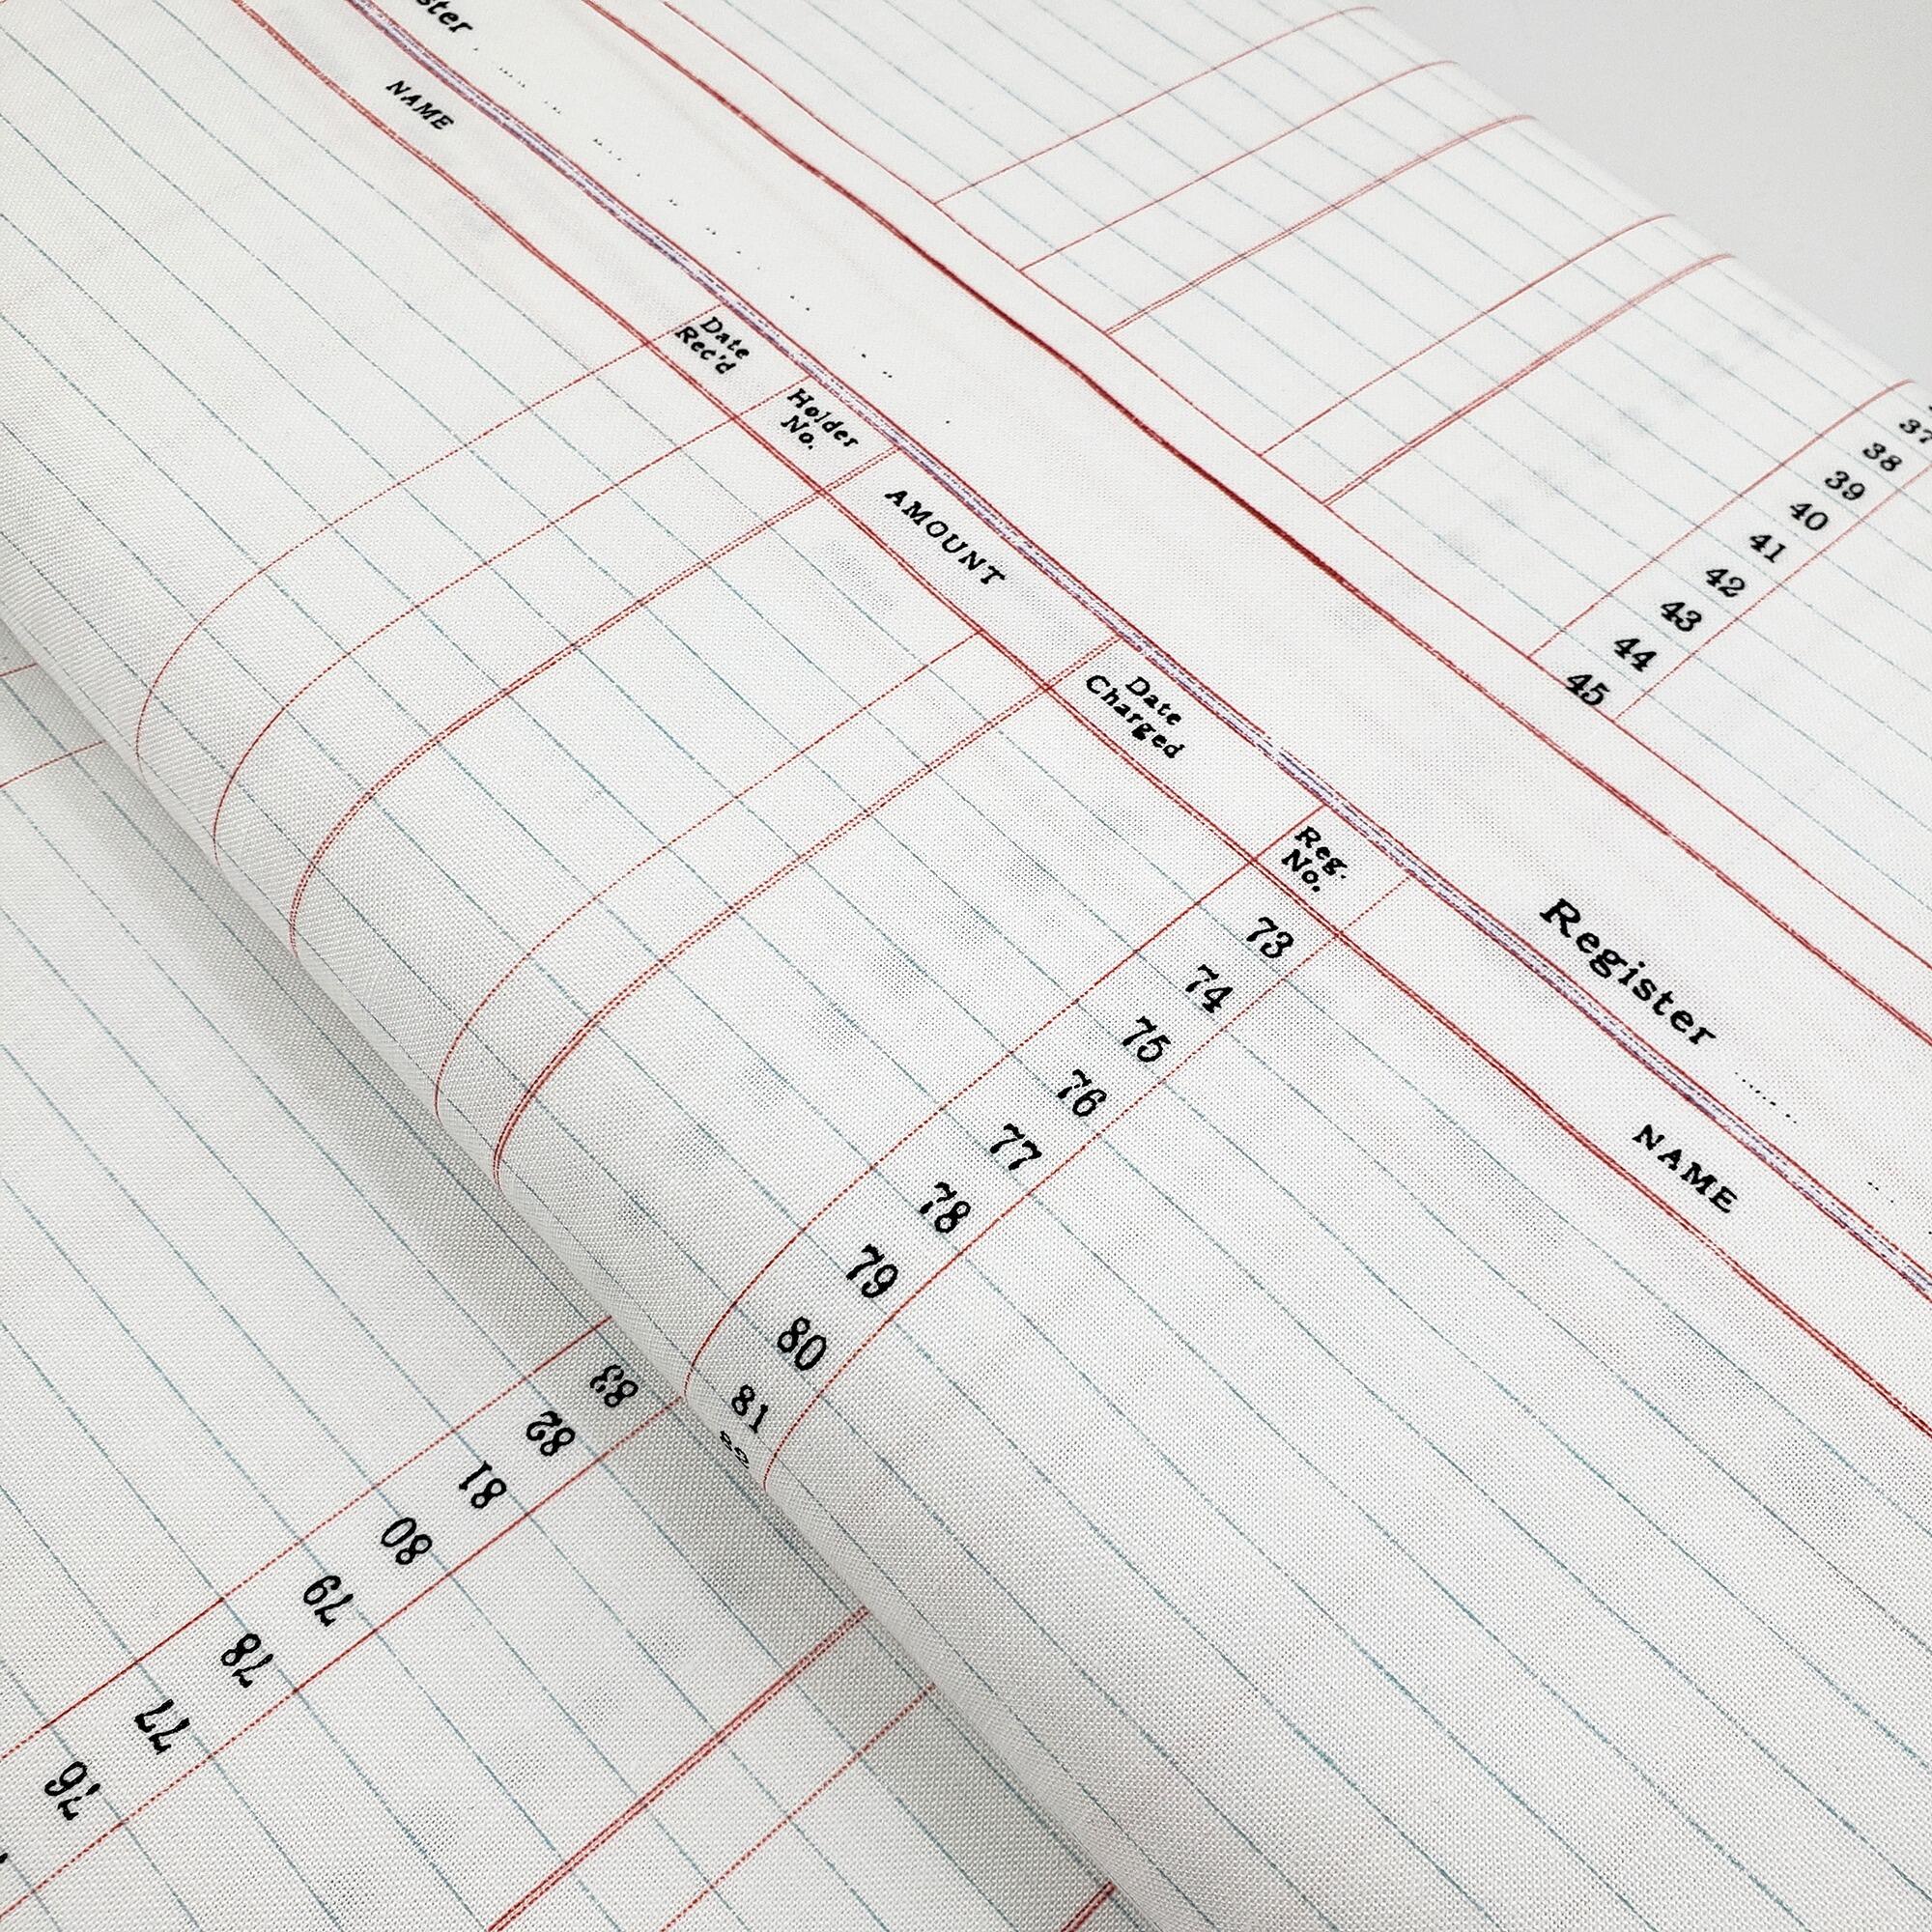 ster
NAME
Date
Rec'd
Holder
No.
AMOUNT
Date
Charged
Reg.
No.
Register
NAME
37
38
39
40
41
42
43
44
45
73
74
75
76
77
78
79
80
81
83
82
81
80
79
78
77
76